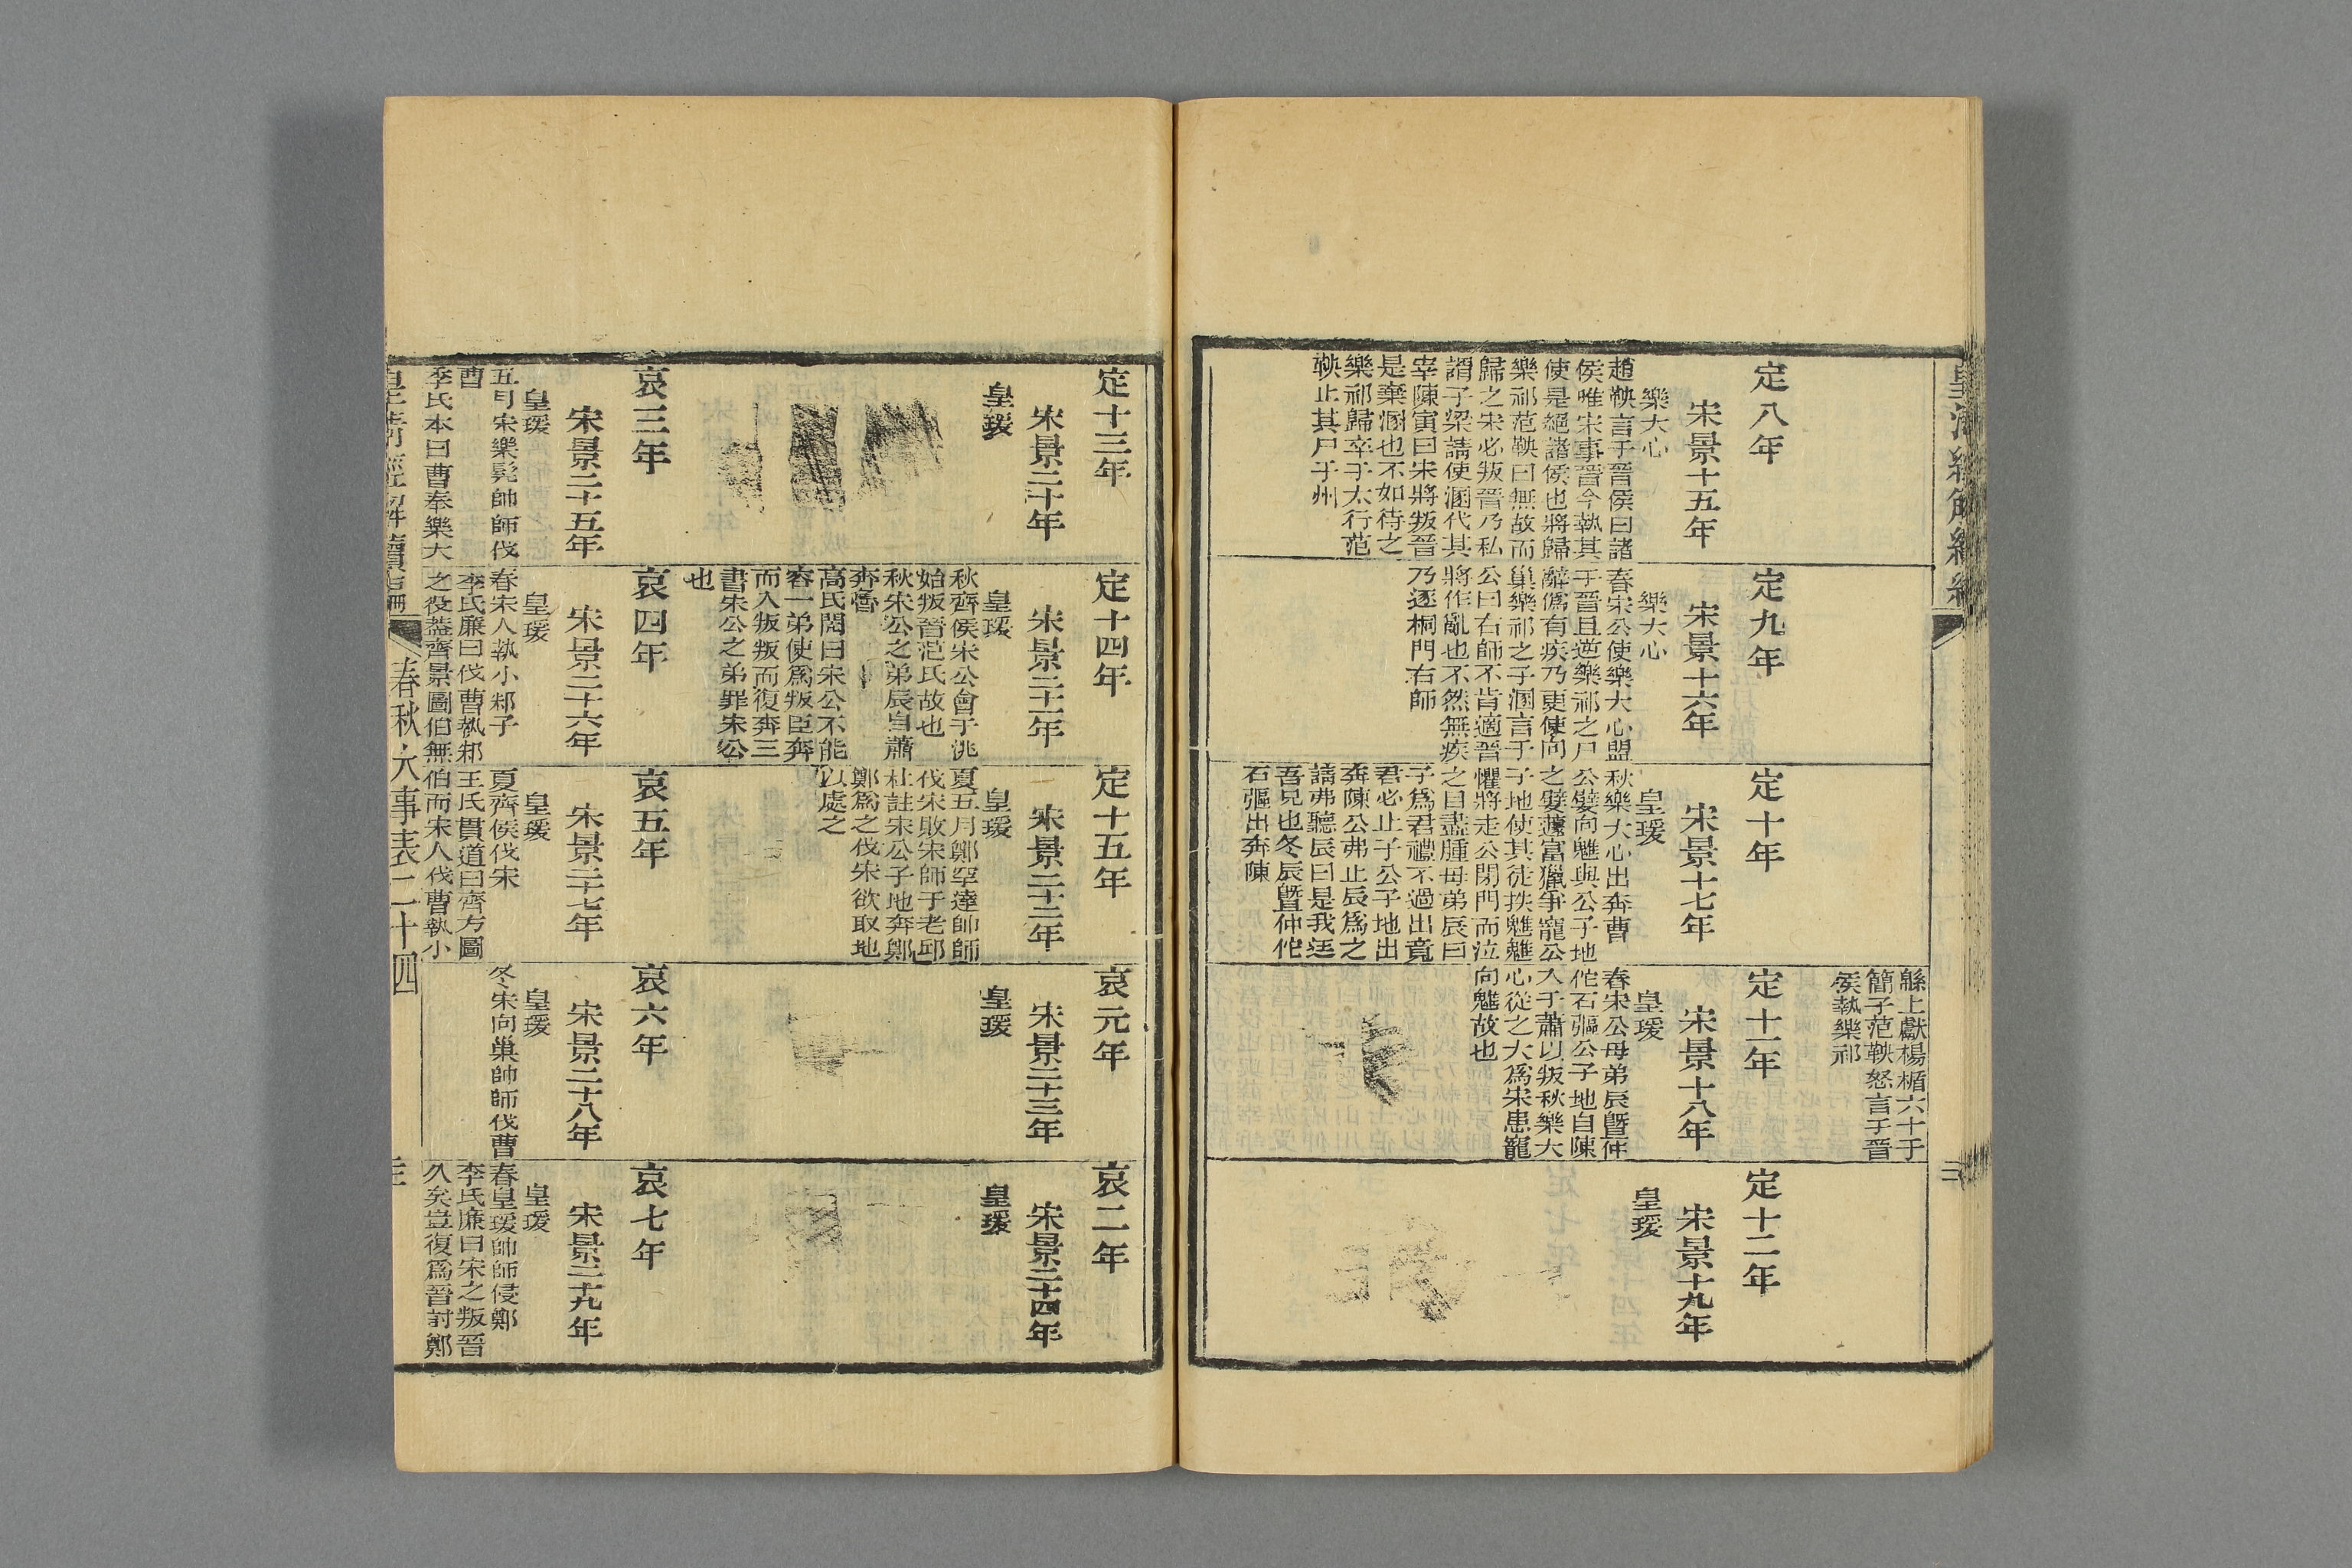 皇清經解續編
緜上獻楊楯六十于
簡子范鞅怒言于晉
侯執樂祁
定八年
宋景十五年
樂大心
趙鞅言于晉侯曰諸
侯唯宋事晉今執其
使是絕諸侯也將歸
樂祁范鞅曰無故而
歸之宋必叛晉乃私
謂子梁請使溷代其
宰陳寅曰宋將叛晉
是棄溷也不如待之
樂祁歸卒于太行范
鞅止其尸于州
定九年
宋景十六年
樂大心
春宋公使樂大心盟
于晉且逆樂祁之尸
辭僞有疾乃更使向
巢樂祁之子溷言于
公曰右師不肯適晉
將作亂也不然無疾
乃逐桐門右師
定十年
宋景十七年
皇瑗
秋樂大心出奔曹
公嬖向魋與公子地
之嬖蘧富獵爭寵公
子地使其徒抶魋魋
懼將走公閉門而泣
之目盡腫母弟辰曰
子爲君禮不過出竟
君必止子公子地出
奔陳公弗止辰爲之
請弗聽辰曰是我迋
吾兄也冬辰曁仲佗
石彄出奔陳
定十一年
宋景十八年
皇瑗
春宋公母弟辰曁仲
佗石彄公子地自陳
入于蕭以叛秋樂大
心從之大爲宋患寵
向魋故也
定十二年
宋景十九年
皇瑗
定十三年
宋景二十年
皇瑗
定十四年
宋景二十一年
皇瑗
秋齊侯宋公會于洮
始叛晉范氏故也
秋宋公之弟辰自蕭
奔魯
高氏閌曰宋公不能
容一弟使爲叛臣奔
而入叛叛而復奔三
書宋公之弟罪宋公
也
定十五年
宋景二十二年
皇瑗
夏五月鄭罕達帥師
伐宋敗宋師于老邱
杜註宋公子地奔鄭
鄭爲之伐宋欲取地
以處之
哀元年
宋景二十三年
皇瑗
哀二年
宋景二十四年
皇瑗
哀三年
宋景二十五年
皇瑗
五月宋樂髡帥師伐
曹
李氏本曰曹奉樂大
哀四年
宋景二十六年
皇瑗
春宋人執小邾子
李氏廉曰伐曹執邾
之役蓋齊景圖伯無
哀五年
宋景二十七年
皇瑗
夏齊侯伐宋
王氏貫道曰齊方圖
伯而宋人伐曹執小
哀六年
宋景二十八年
皇瑗
冬宋向巢帥師伐曹
哀七年
宋景二十九年
皇瑗
春皇瑗帥師侵鄭
李氏廉曰宋之叛晉
久矣豈復爲晉討鄭
皇淸經解續編
春秋大事表二十四